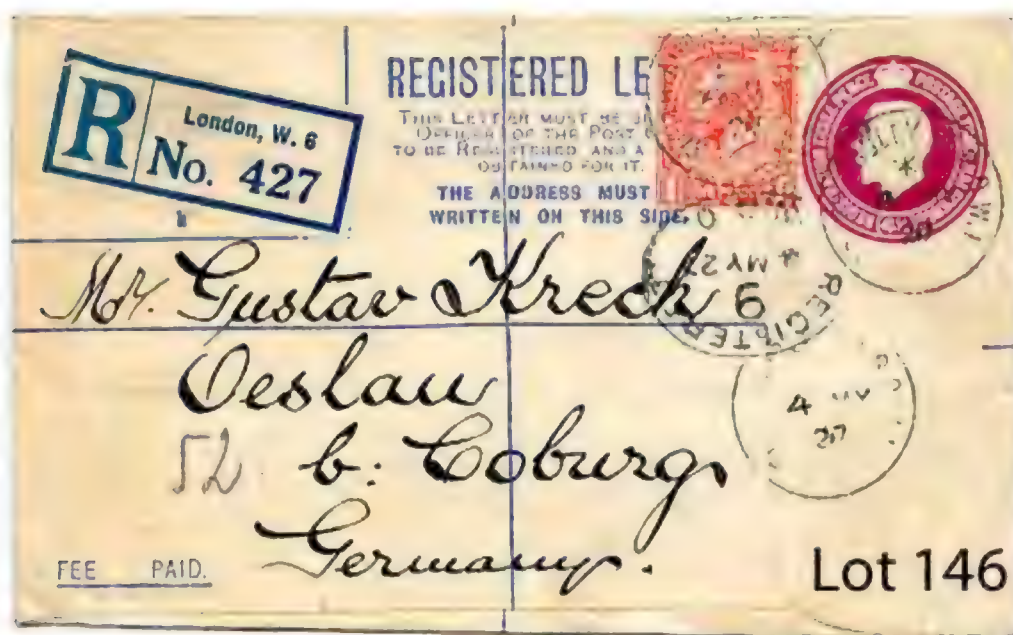 REGISTERED LE
THIS LETTER MUST BE
OFFICER OF THE POST
TO BE REGISTERED AND A
OBTAINED FOR IT.
THE ADDRESS MUST
WRITTEN ON THIS SIDE.
R
London, W. 6
No. 427
REGISTER
4 MY 2
4 MY
20
Mr. Gustav Kreck
Oeslau
52 b. Coburg
Germany.
FEE PAID.
Lot 146